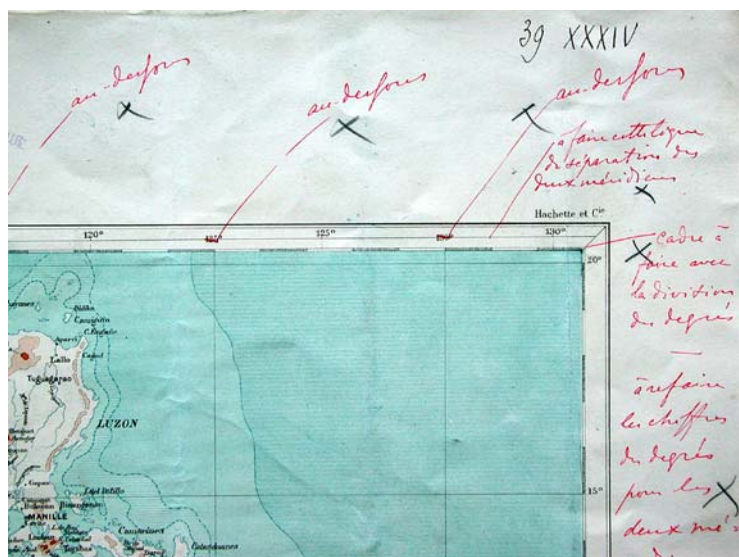 39 XXXIV
au-dessous
au-dessous
au-dessous
à faire cette ligne
de séparation des
deux méridiens
Hachette et Cie
120°
125°
125°
130°
130°
cadre à
faire avec
la division
des degrés
20°
à refaire
les chiffres
des degrés
pour les
deux mé=
C. Engaño
Aparri
Lallo
Tuguegarao
LUZON
15°
MANILLE
Camarines
Catanduanes
Tayabas